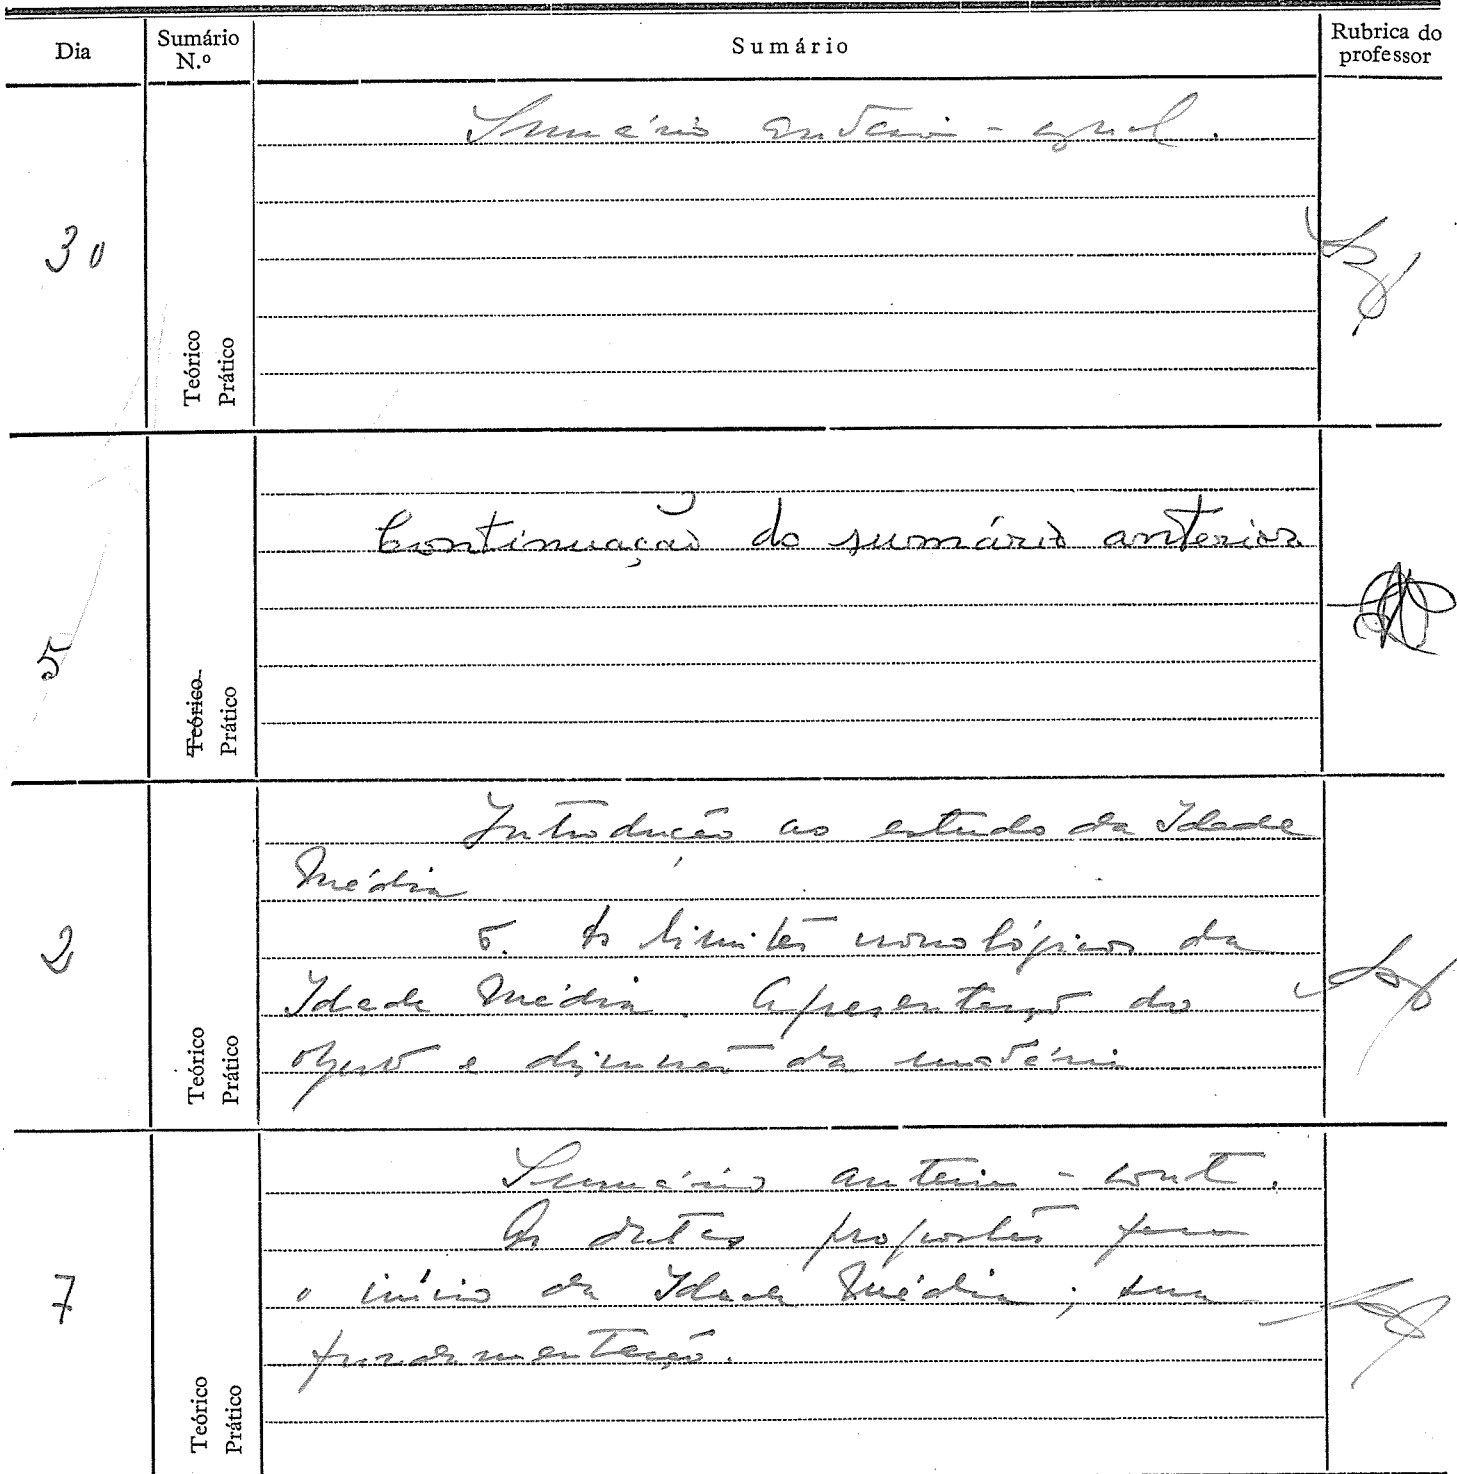 Dia Sumário N.º Sumário Rubrica do professor
Sumário anterior -
30
Teórico
Prático
Continuação do sumário anterior
5
Teórico
Prático
Introdução ao estudo da Idade
Média
Os limites cronológicos da
2
Idade Média. Apresentação do
objecto e da matéria
Teórico
Prático
Sumário anterior - cont.
As datas propostas para
7
o início da Idade Média; sua
fundamentação.
Teórico
Prático